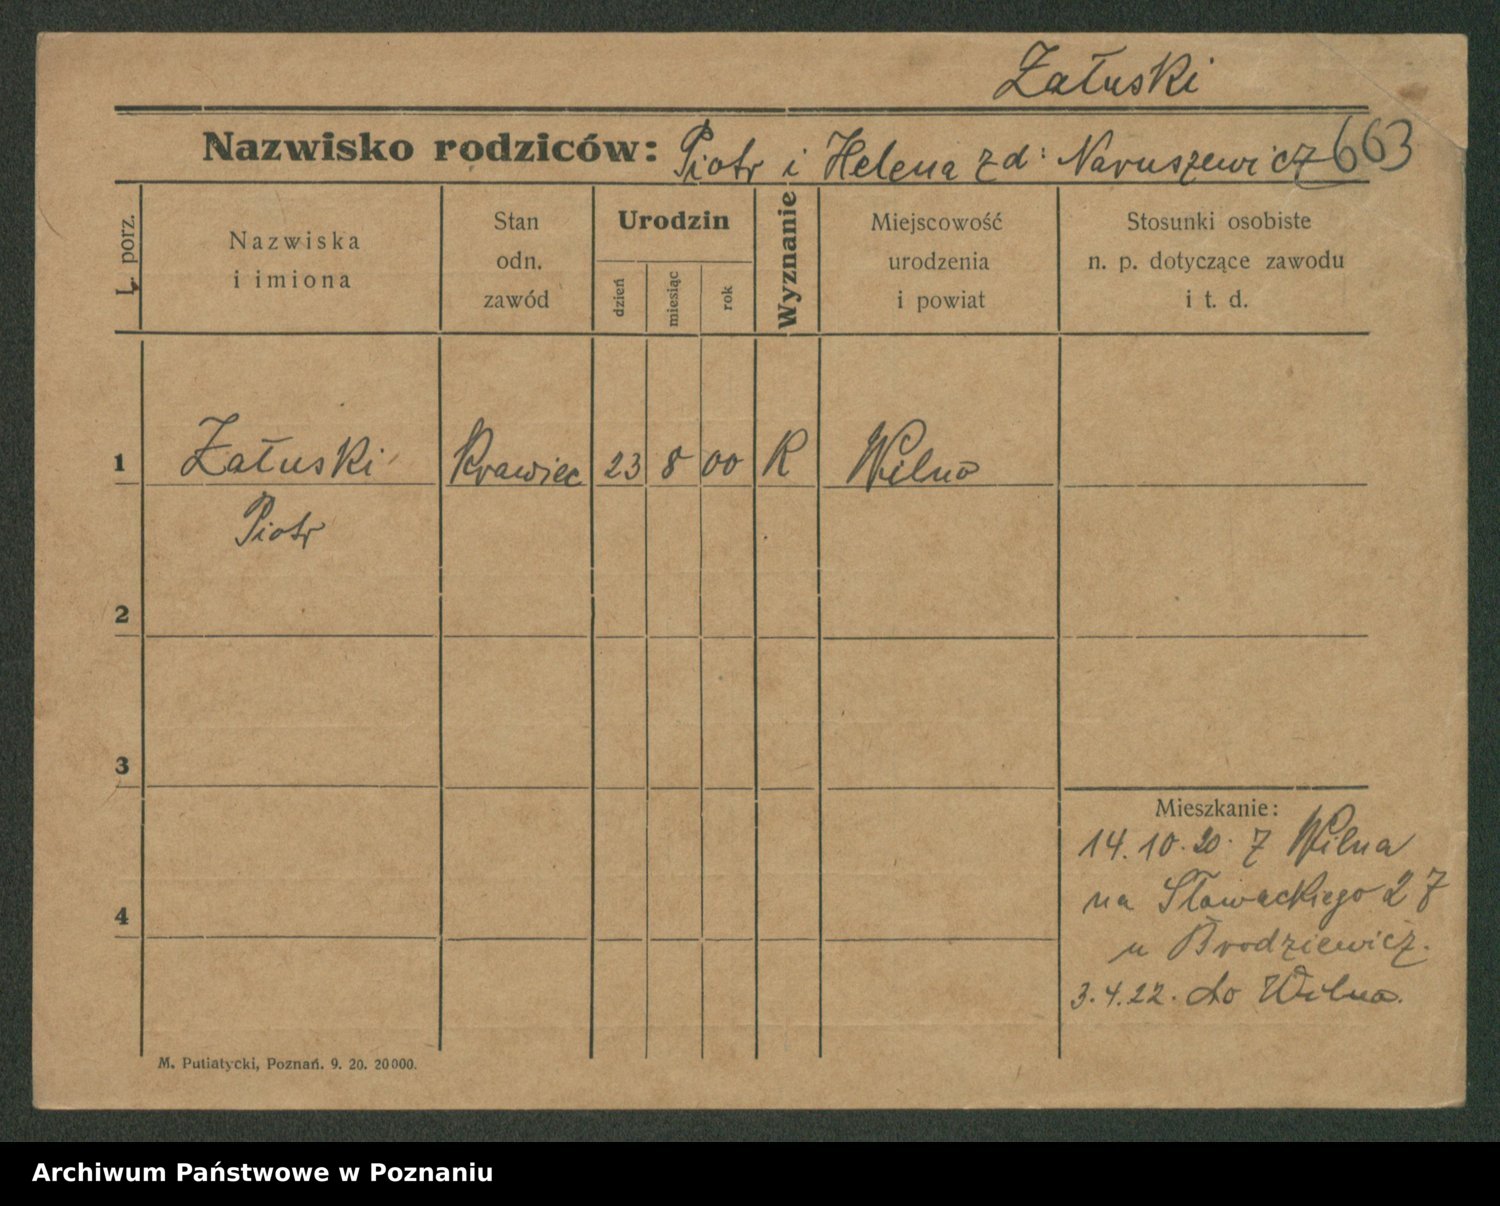 Załuski
Nazwisko rodziców: Piotr i Helena z d: Naruszewicz 663
L. porz.
Nazwiska
i imiona
Stan
odn.
zawód
Urodzin
dzień
miesiąc
rok
Wyznanie
Miejscowość
urodzenia
i powiat
Stosunki osobiste
n. p. dotyczące zawodu
i t. d.
1 Załuski Krawiec 23 8 00 R Wilno
Piotr
2
3
Mieszkanie:
14.10.20. z Wilna
na Słowackiego 27
4
u Brodziewicz.
3.4.22. do Wilna.
M. Putiatycki, Poznań. 9. 20. 20000.
Archiwum Państwowe w Poznaniu